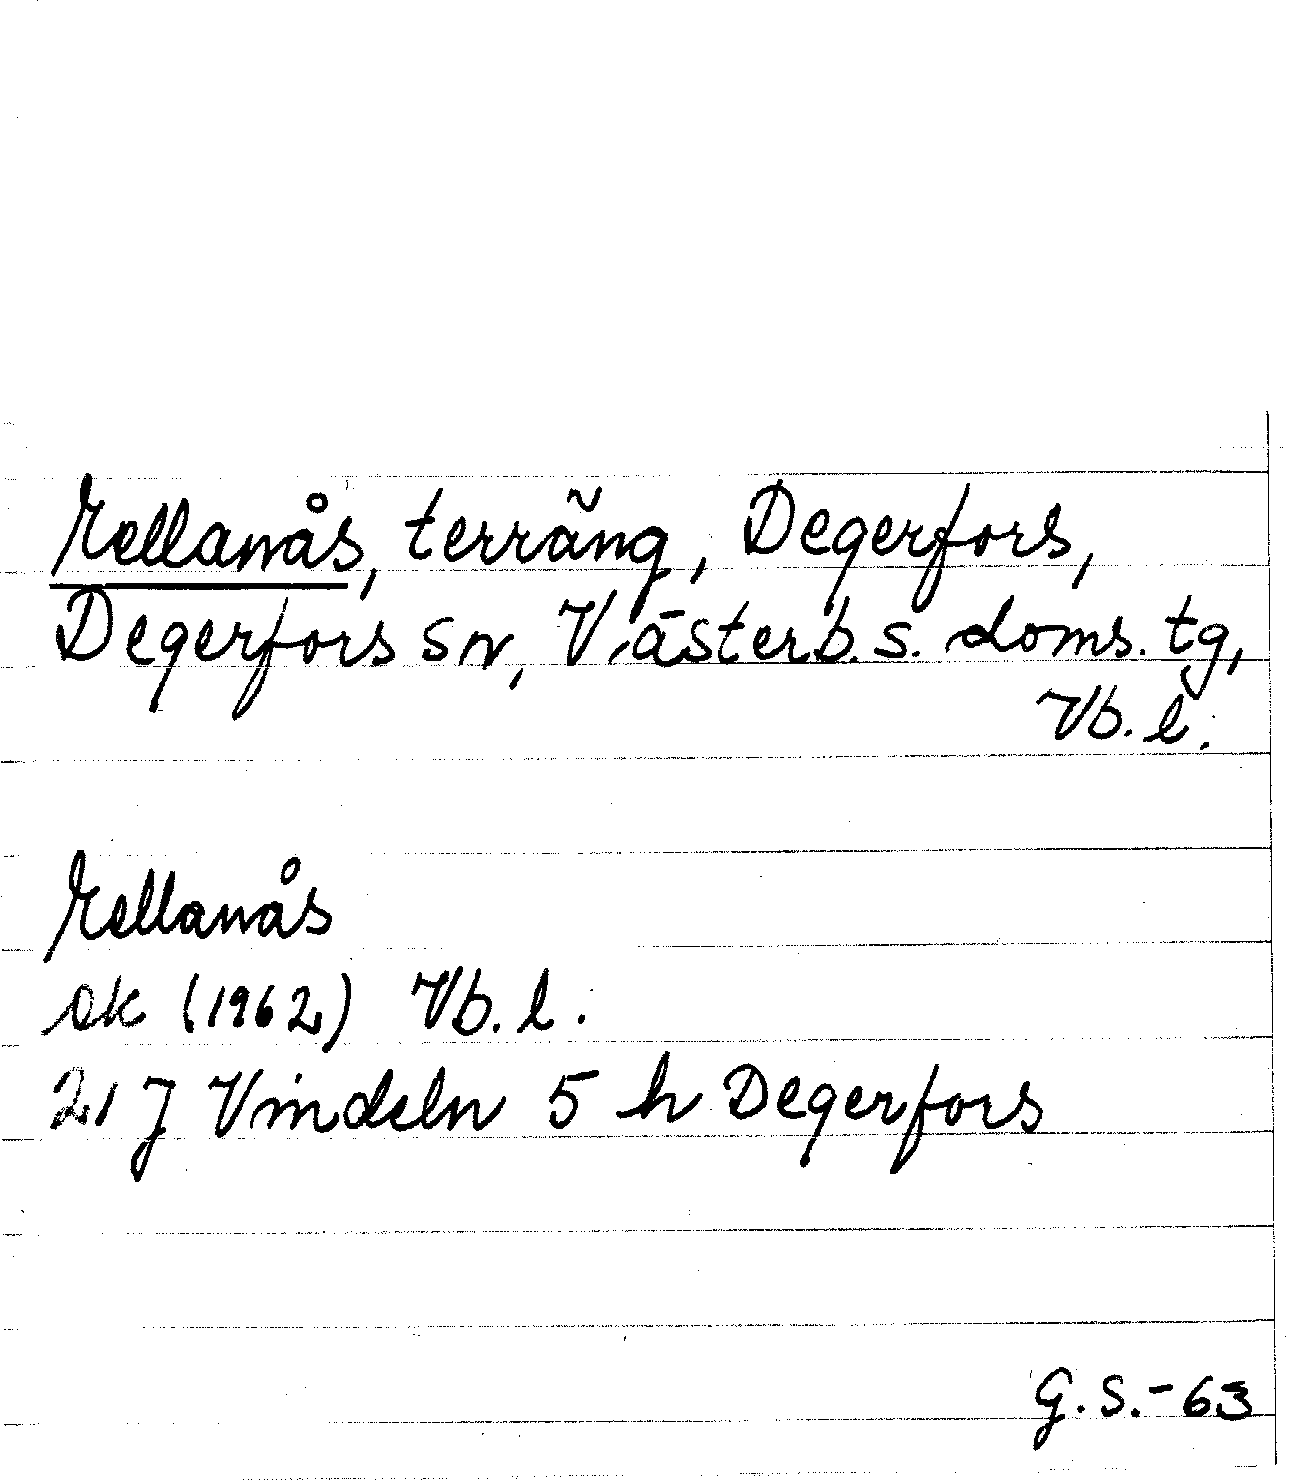 Mellanås, terräng, Degerfors,
Degerfors sn, Västerb. s. doms. tg,
Vb. l.
Mellanås
ek (1962) Vb. l.
21 J Vindeln 5 h Degerfors
G. S. - 63